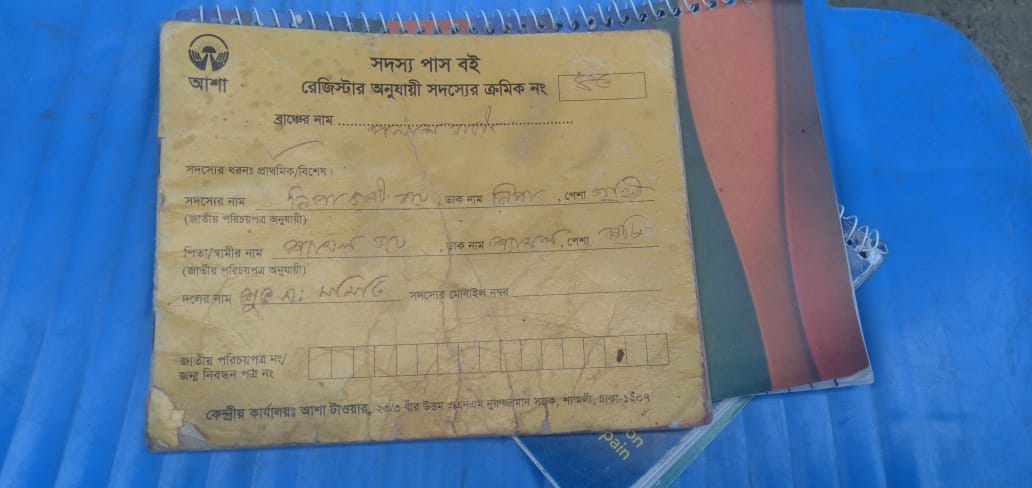 আশা
সদস্য পাস বই
রেজিস্টার অনুযায়ী সদস্যের ক্রমিক নং
ব্রাঞ্চের নাম
সদস্যের ধরনঃ প্রাথমিক/বিশেষ।
সদস্যের নাম নিপা রানী রায়, ডাক নাম নিপা, পেশা
(জাতীয় পরিচয়পত্র অনুযায়ী)
পিতা/স্বামীর নাম শ্যামল রায়, ডাক নাম শ্যামল, পেশা
(জাতীয় পরিচয়পত্র অনুযায়ী)
দলের নাম সমিতি সদস্যের মোবাইল নম্বর
জাতীয় পরিচয়পত্র নং/
জন্ম নিবন্ধন পত্র নং
কেন্দ্রীয় কার্যালয়ঃ আশা টাওয়ার, ২৩/৩ বীর উত্তম এ.এন.এম নুরুজ্জামান সড়ক, শ্যামলী, ঢাকা-১২০৭
on
pain